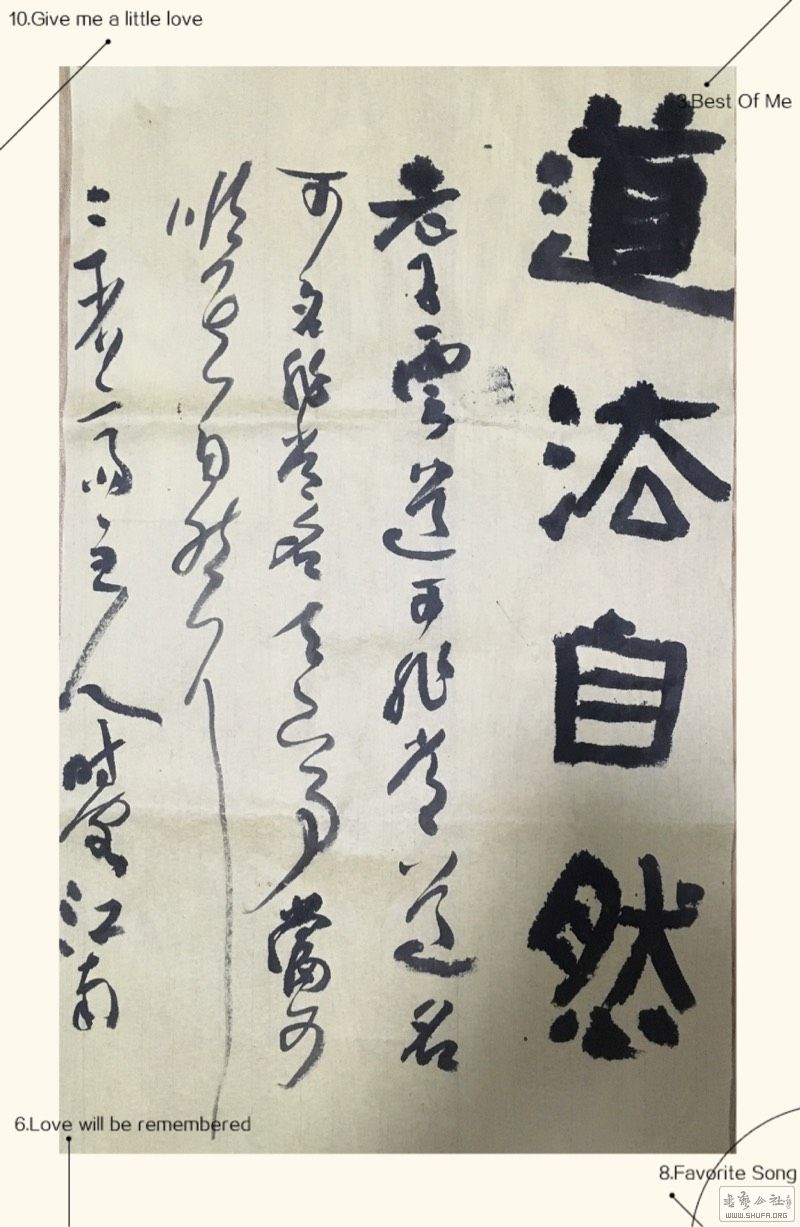 10.Give me a little love
3.Best Of Me
道法自然
老子雲道可非常道名
可名非常名天下事當可
順自然
齋主人時客江南
6.Love will be remembered
8.Favorite Song
WWW.SHUFA.ORG